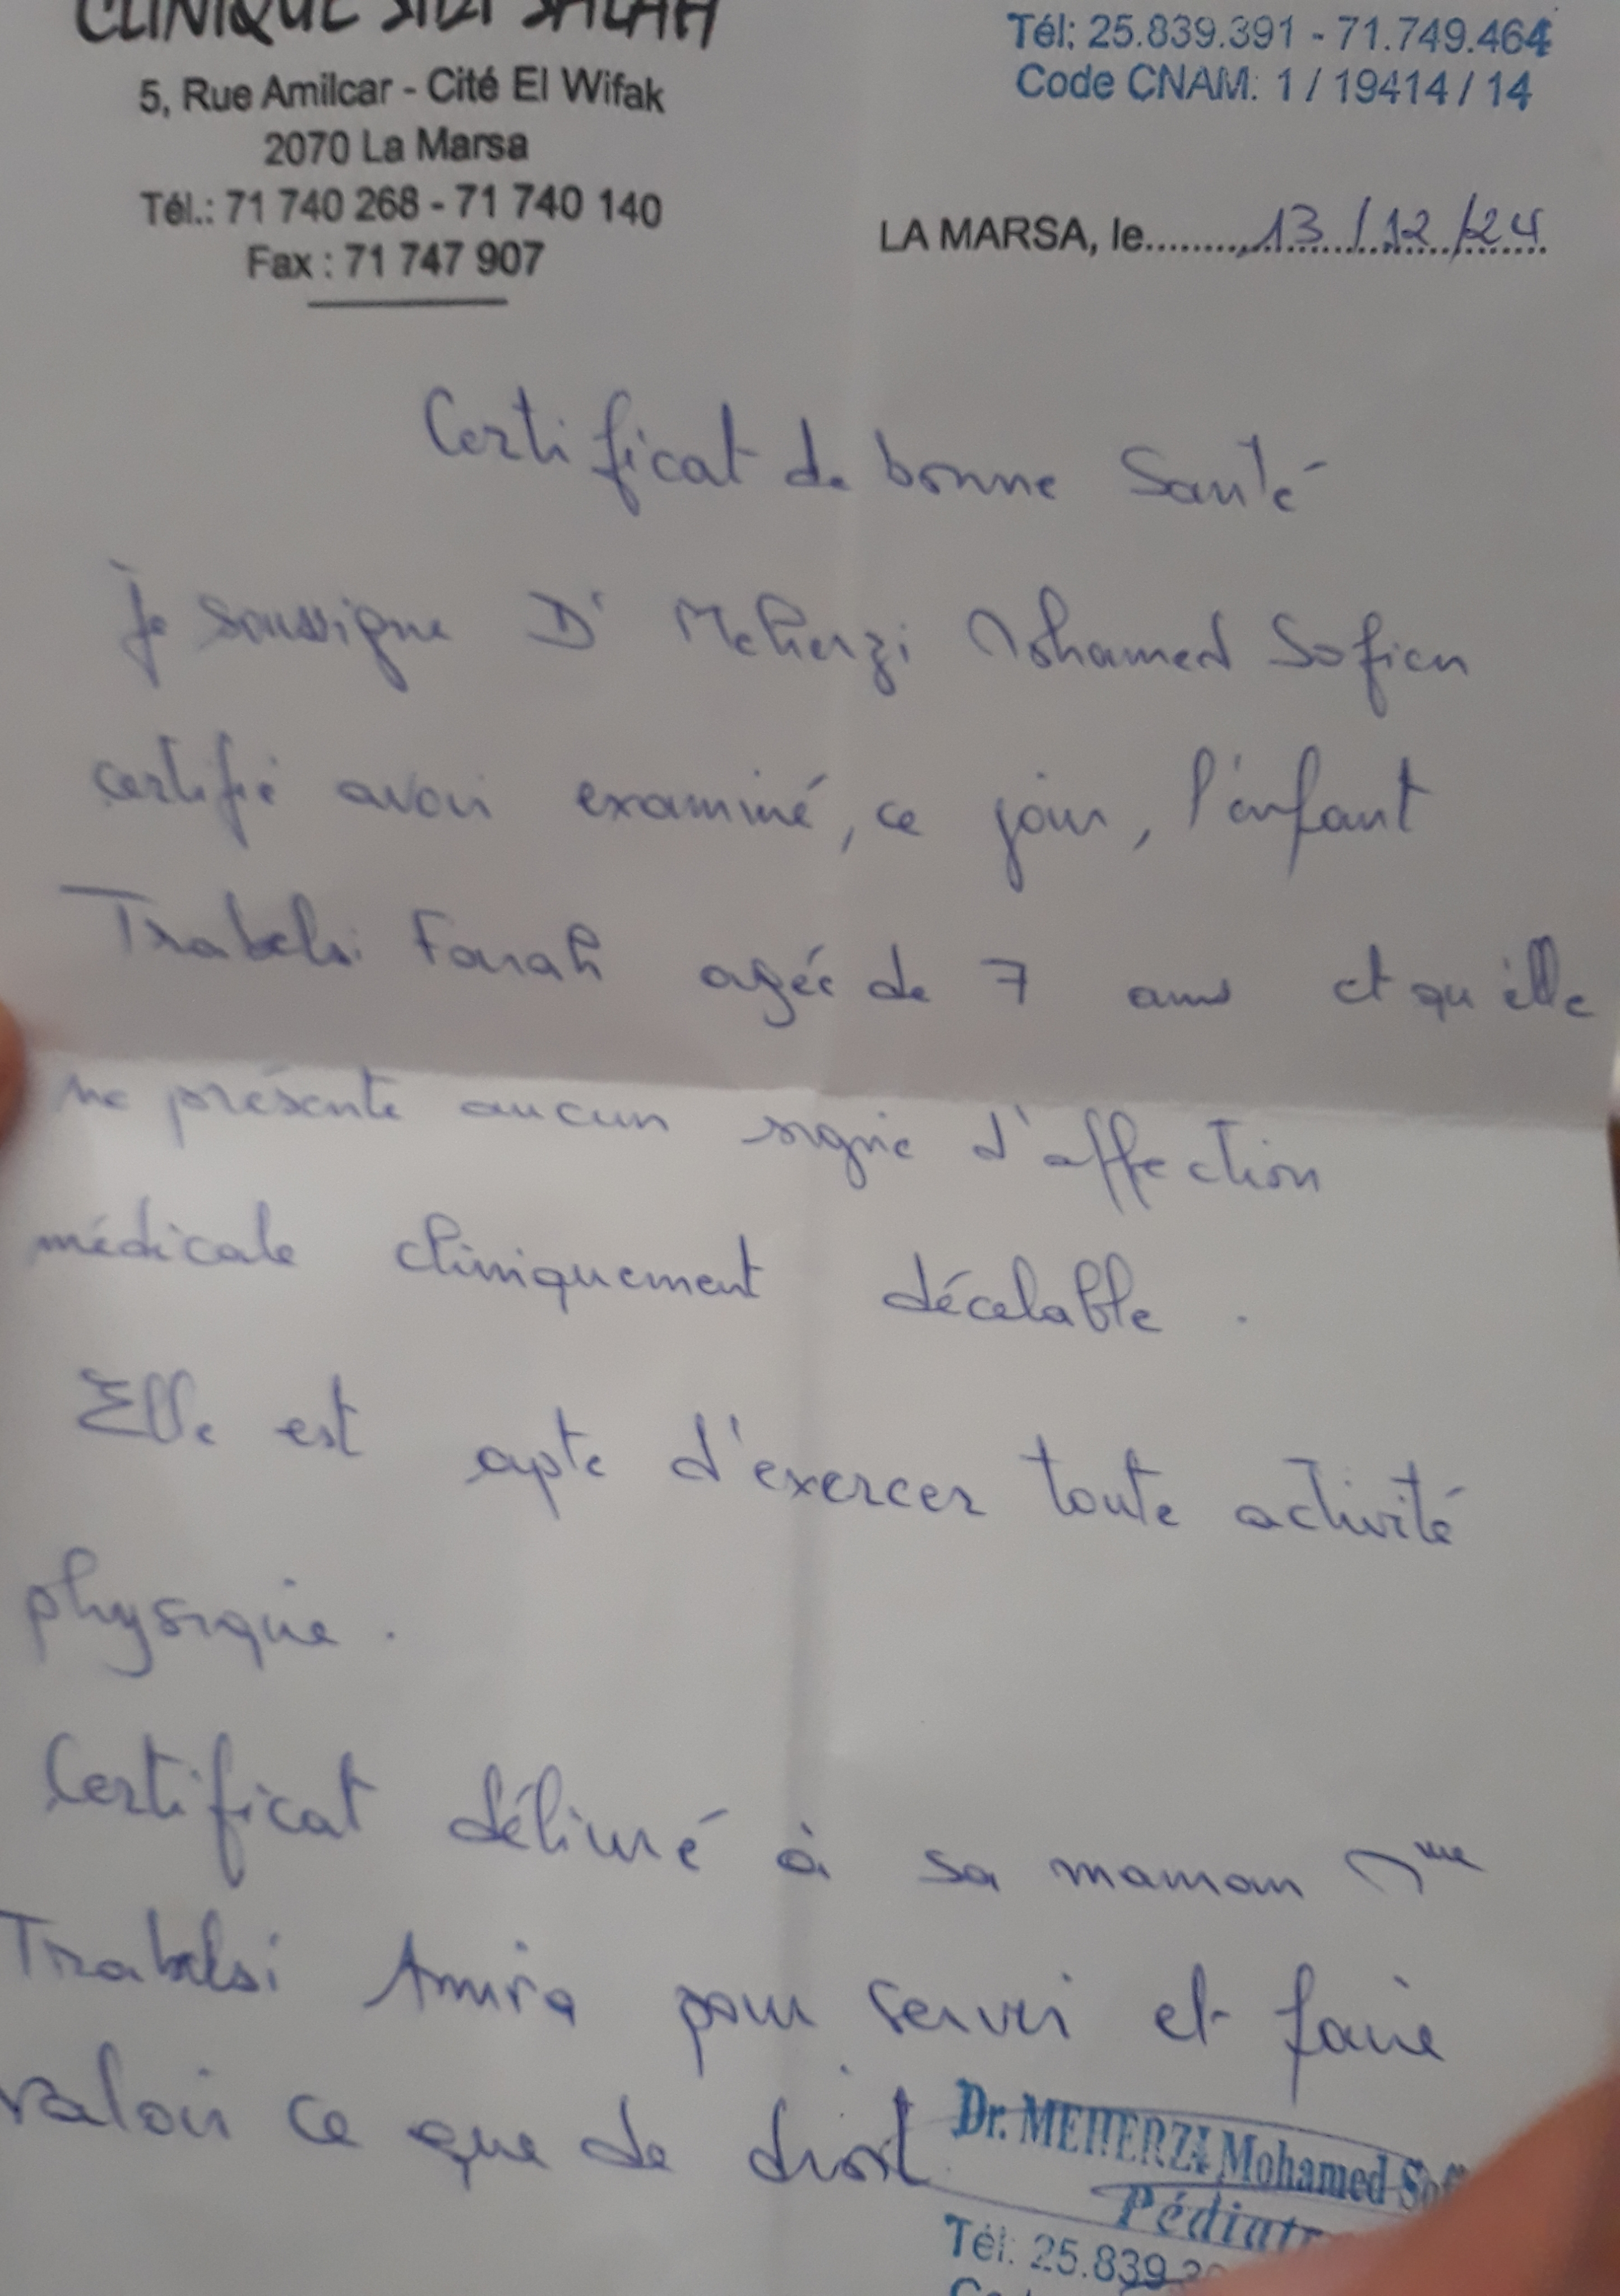 CLINIQUE SIDI SALAH
5, Rue Amilcar - Cité El Wifak
2070 La Marsa
Tél.: 71 740 268 - 71 740 140
Fax : 71 747 907
Tél: 25.839.391 - 71.749.464
Code CNAM: 1 / 19414 / 14
LA MARSA, le..........13/12/24
Certificat de bonne Santé
Je soussigne Dr Meherzi Mohamed Sofien
certifié avoir examiné, ce jour, l'enfant
Trabelsi Farah agée de 7 ans et qu'elle
ne présente aucun signe d'affection
médicale cliniquement décelable.
Elle est apte d'exercer toute activité
physique.
Certificat délivré à sa maman Mme
Trabelsi Amira pour servir et faire
valoir ce que de droit
Dr. MEHERZI Mohamed Sof
Pédiatr
Tél: 25.839